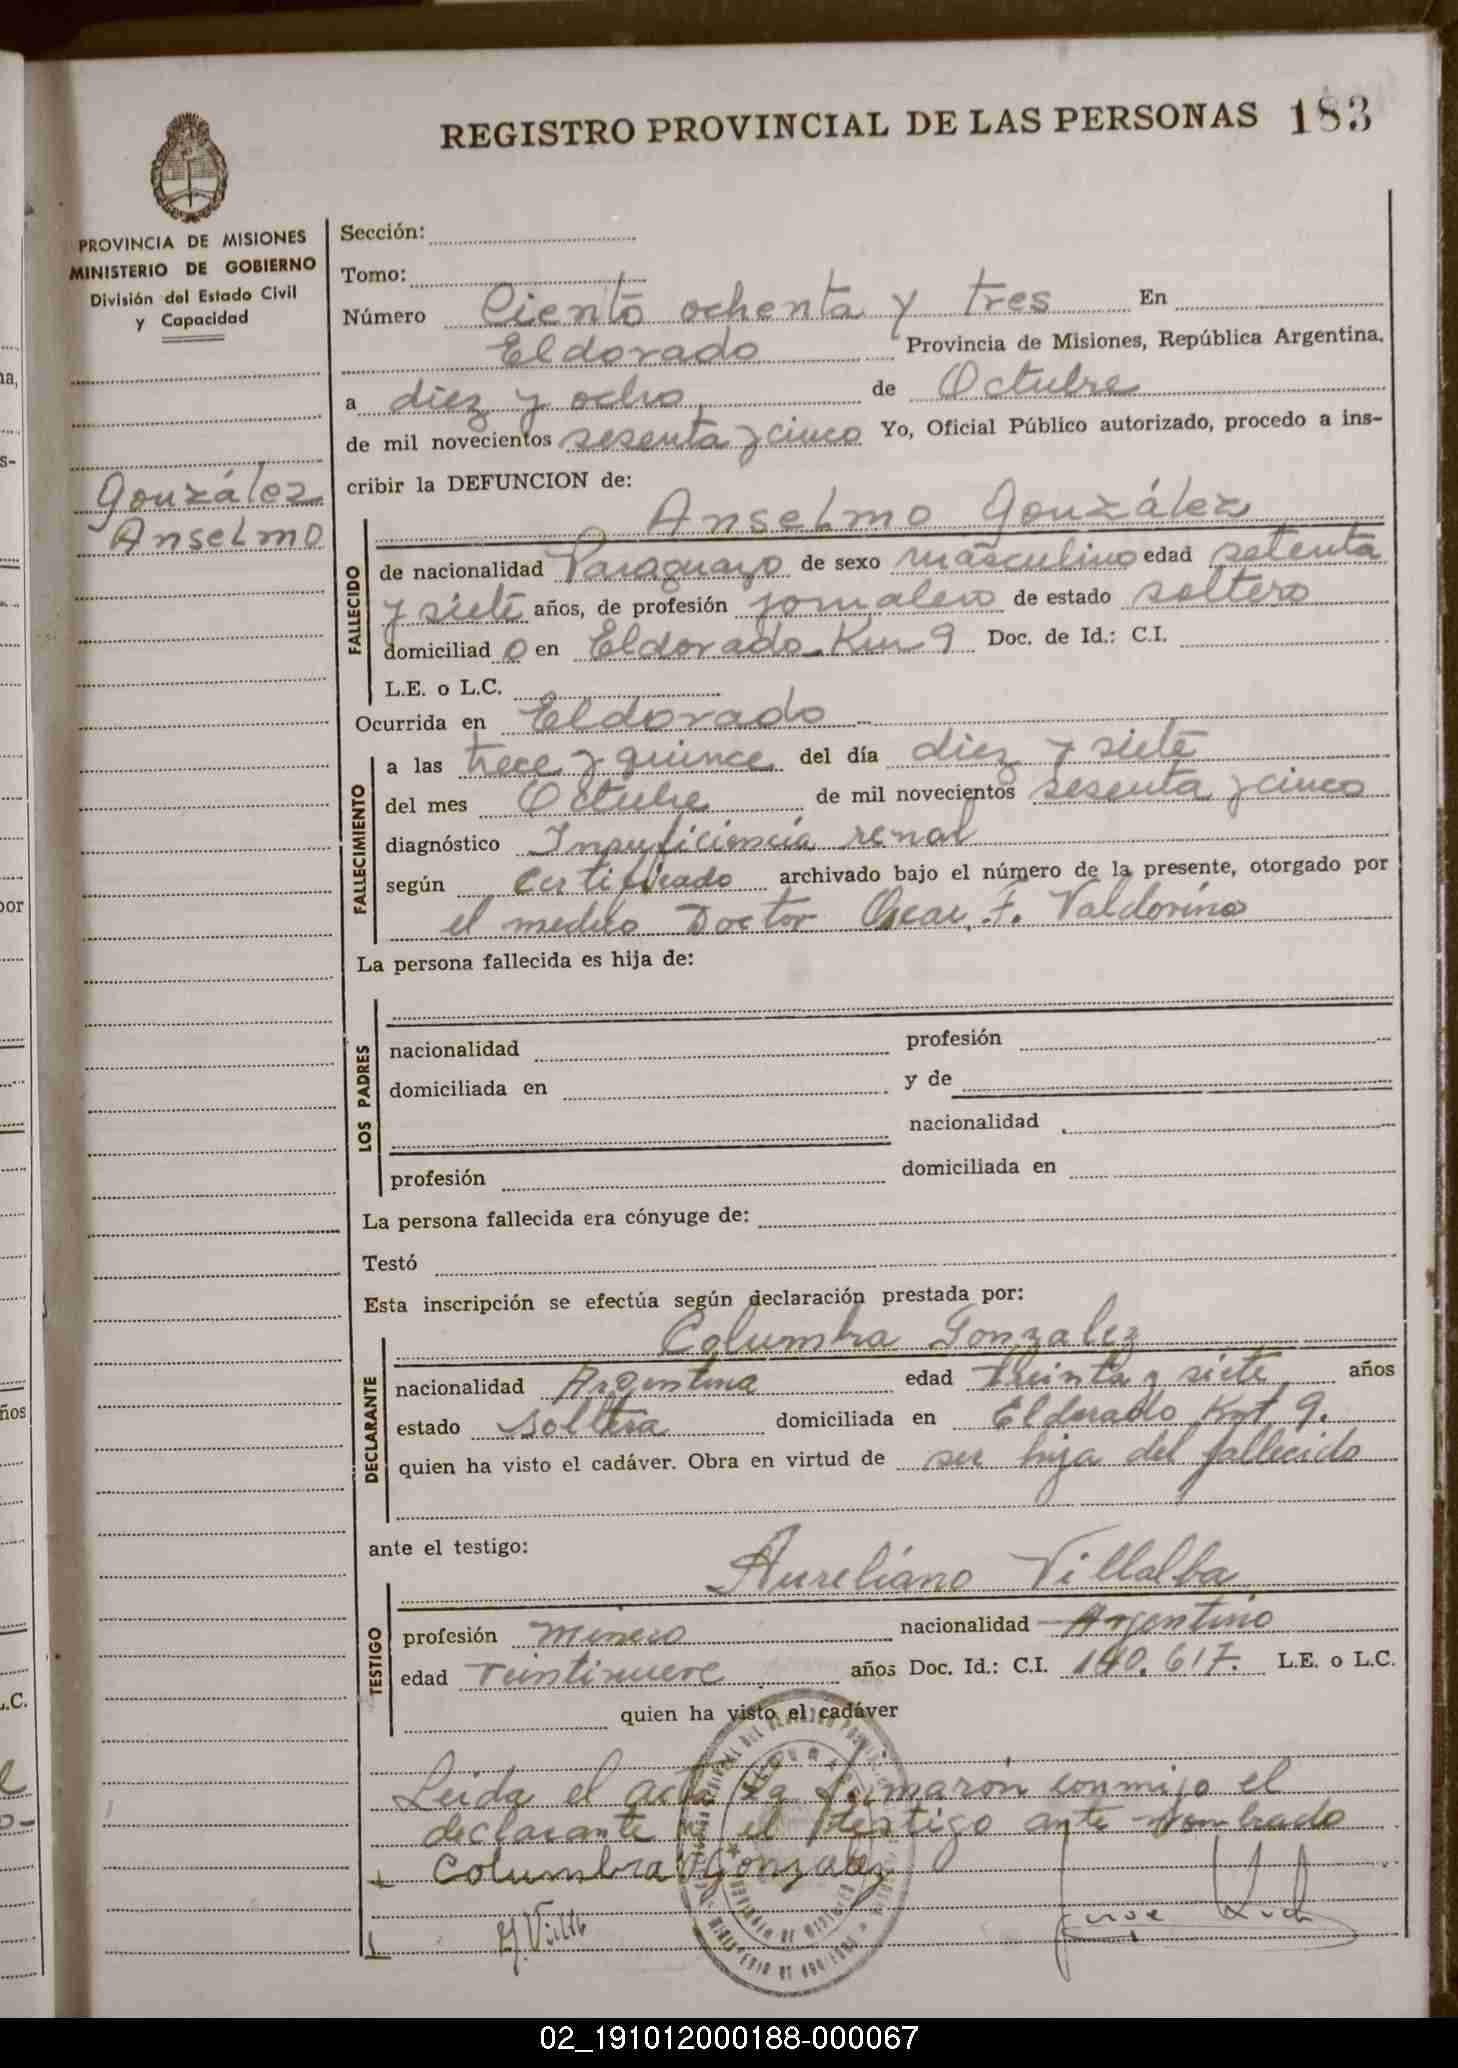 REGISTRO PROVINCIAL DE LAS PERSONAS 183
PROVINCIA DE MISIONES
MINISTERIO DE GOBIERNO
División del Estado Civil
y Capacidad
González
Anselmo
Sección:
Tomo:
Número Ciento ochenta y tres En
Eldorado Provincia de Misiones, República Argentina,
a diez y ocho de Octubre
de mil novecientos sesenta y cinco Yo, Oficial Público autorizado, procedo a ins-
cribir la DEFUNCION de:
Anselmo González
FALLECIDO
de nacionalidad Paraguayo de sexo masculino edad setenta
y siete años, de profesión jornalero de estado soltero
domiciliado en Eldorado Km 9 Doc. de Id.: C.I.
L.E. o L.C.
Ocurrida en Eldorado
FALLECIMIENTO
a las trece y quince del día diez y siete
del mes Octubre de mil novecientos sesenta y cinco
diagnóstico Insuficiencia renal
según certificado archivado bajo el número de la presente, otorgado por
el medico Doctor Oscar F. Valdorino
La persona fallecida es hija de:
LOS PADRES
nacionalidad profesión
domiciliada en y de
nacionalidad
profesión domiciliada en
La persona fallecida era cónyuge de:
Testó
Esta inscripción se efectúa según declaración prestada por:
Columbra Gonzalez
DECLARANTE
nacionalidad Argentina edad treinta y siete años
estado soltera domiciliada en Eldorado Kmt 9.
quien ha visto el cadáver. Obra en virtud de ser hija del fallecido
ante el testigo:
Aureliano Villalba
TESTIGO
profesión minero nacionalidad Argentino
edad veintinueve años Doc. Id.: C.I. 140.617. L.E. o L.C.
quien ha visto el cadáver
Leida el acta la firmaron conmigo el
declarante y el testigo ante nombrado
Columbra Gonzalez
A. Villb
02_191012000188-000067